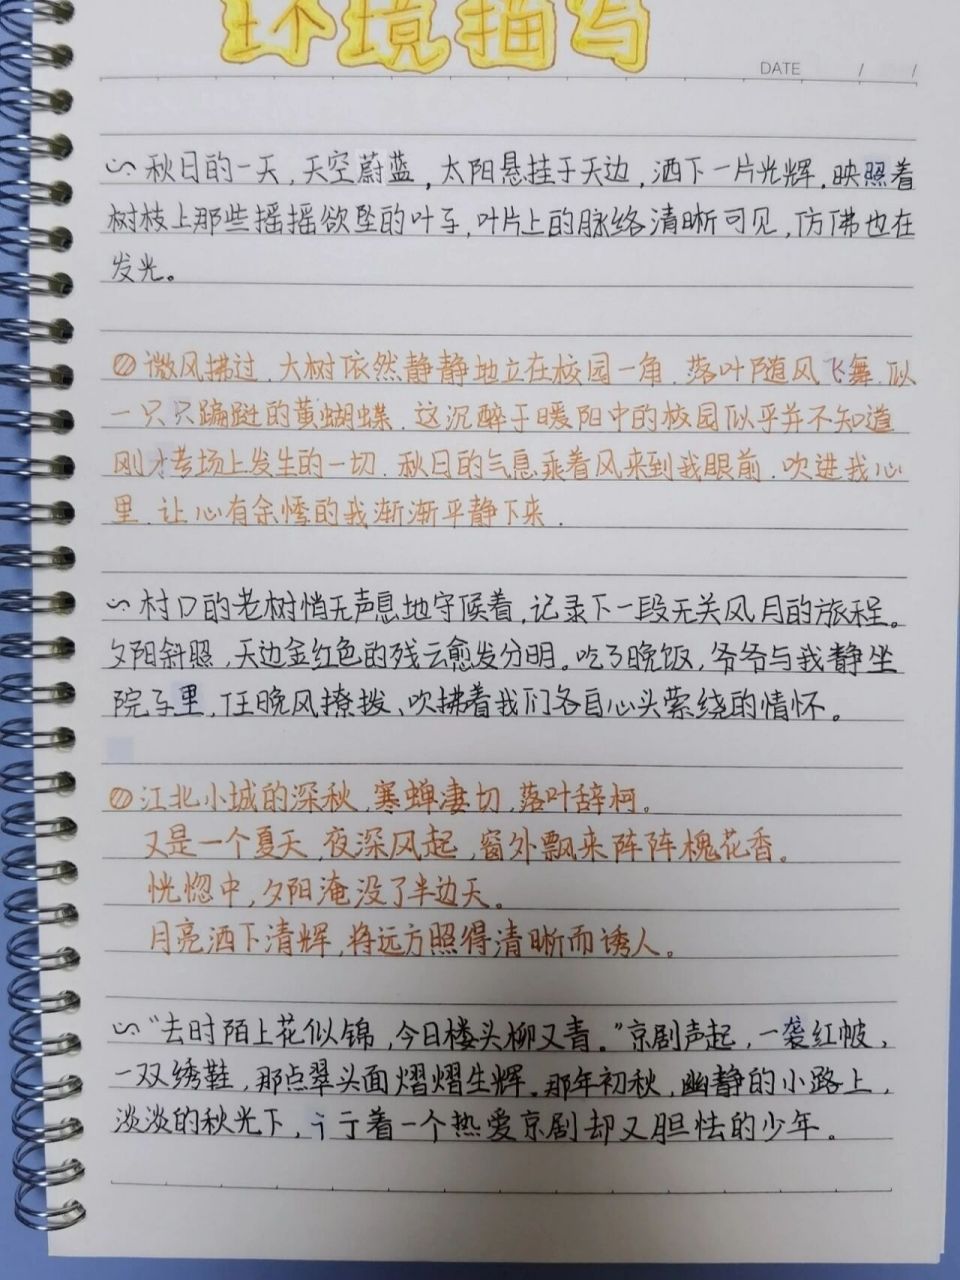 环境描写
DATE / /
秋日的一天,天空蔚蓝,太阳悬挂于天边,洒下一片光辉,映照着
树枝上那些摇摇欲坠的叶子,叶片上的脉络清晰可见,仿佛也在
发光。
微风拂过.大树依然静静地立在校园一角.落叶随风飞舞.似
一只只蹁跹的黄蝴蝶.这沉醉于暖阳中的校园似乎并不知道
刚才考场上发生的一切.秋日的气息乘着风来到我眼前.吹进我心
里.让心有余悸的我渐渐平静下来.
村口的老树悄无声息地守候着,记录下一段无关风月的旅程。
夕阳斜照,天边金红色的残云愈发分明。吃了晚饭,爷爷与我静坐
院子里,任晚风撩拨、吹拂着我们各自心头萦绕的情怀。
江北小城的深秋,寒蝉凄切,落叶辞柯。
又是一个夏天,夜深风起,窗外飘来阵阵槐花香。
恍惚中,夕阳淹没了半边天。
月亮洒下清辉,将远方照得清晰而诱人。
“去时陌上花似锦,今日楼头柳又青。”京剧声起,一袭红帔,
一双绣鞋,那点翠头面熠熠生辉.那年初秋,幽静的小路上,
淡淡的秋光下,彳亍着一个热爱京剧却又胆怯的少年。